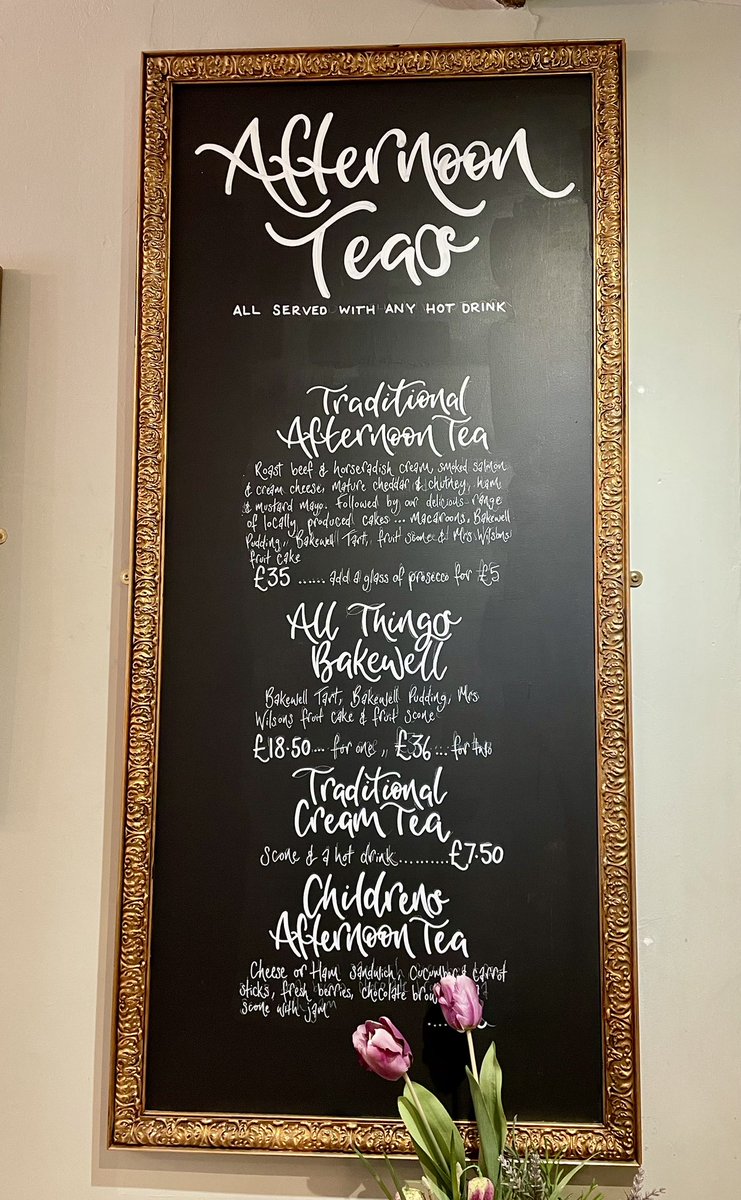 Afternoon
Teas
ALL SERVED WITH ANY HOT DRINK
Traditional
Afternoon Tea
Roast beef & horseradish cream, smoked salmon
& cream cheese, mature cheddar & chutney, ham
& mustard mayo. Followed by our delicious range
of locally produced cakes ... Macaroons, Bakewell
Pudding, Bakewell Tart, fruit scone & Mrs Wilsons
fruit cake
£35 ...... add a glass of prosecco for £5
All Things
Bakewell
Bakewell Tart, Bakewell Pudding, Mrs
Wilsons fruit cake & fruit scone
£18.50 ... for one ,, £36 ... for two
Traditional
Cream Tea
Scone & a hot drink..........£7.50
Childrens
Afternoon Tea
Cheese or Ham sandwich, cucumber & carrot
sticks, fresh berries, chocolate
scone with jam